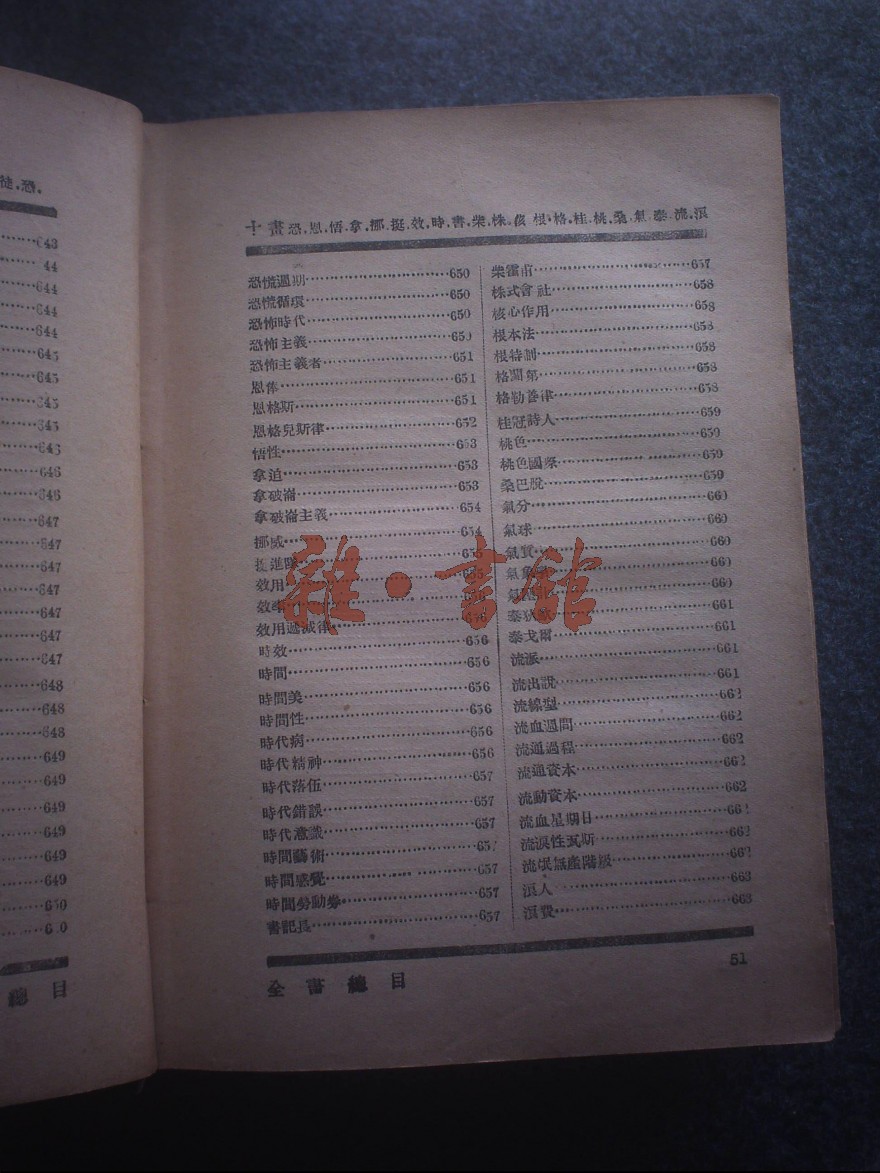 徒．恐．
643
44
644
644
644
645
645
645
645
646
646
646
647
647
647
647
647
647
648
648
648
649
649
649
649
649
650
總 目
十畫 恐．恩．悟．拿．挪．挺．效．時．書．柴．株．核．根．格．桂．桃．桑．氣．泰．流．浪
恐慌週期 650
恐慌循環 650
恐怖時代 650
恐怖主義 650
恐怖主義者 651
恩俸 651
恩格斯 651
恩格兒斯律 652
悟性 653
拿迫 653
拿破崙 653
拿破崙主義 654
挪威 654
挺進隊 655
效用
效率
效用遞減律 656
時效 656
時間 656
時間美 656
時間性 656
時代病 656
時代精神 656
時代落伍 657
時代錯誤 657
時代意識 657
時間藝術 657
時間感覺 657
時間勞動券 657
書記長 657
柴霍甫 657
株式會社 658
核心作用 658
根本法 658
根特制 658
格閩第 658
格勒善律 658
桂冠詩人 659
桃色 659
桃色國際 659
桑巴脫 659
氣分 660
氣球 660
氣質 660
氣象 660
660
泰 661
泰戈爾 661
流派 661
流出說 661
流線型 662
流血週間 662
流通過程 662
流通資本 662
流動資本 662
流血星期日 662
流淚性瓦斯 662
流氓無產階級 662
浪人 663
浪費 663
全書總目
51
雜·書館